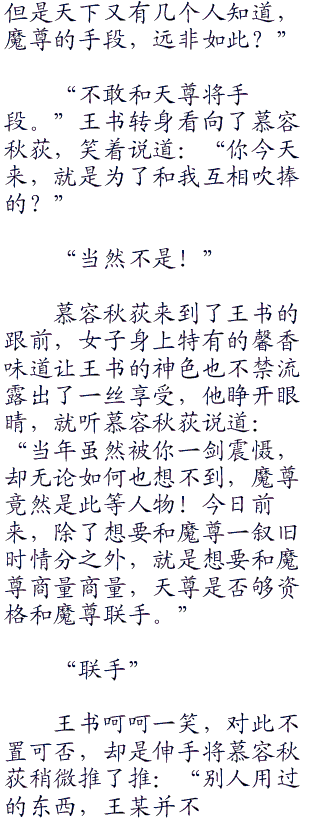 但是天下又有几个人知道，
魔尊的手段，远非如此？”
“不敢和天尊将手
段。”王书转身看向了慕容
秋荻，笑着说道：“你今天
来，就是为了和我互相吹捧
的？”
“当然不是！”
慕容秋荻来到了王书的
跟前，女子身上特有的馨香
味道让王书的神色也不禁流
露出了一丝享受，他睁开眼
睛，就听慕容秋荻说道：
“当年虽然被你一剑震慑，
却无论如何也想不到，魔尊
竟然是此等人物！今日前
来，除了想要和魔尊一叙旧
时情分之外，就是想要和魔
尊商量商量，天尊是否够资
格和魔尊联手。”
“联手”
王书呵呵一笑，对此不
置可否，却是伸手将慕容秋
荻稍微推了推：“别人用过
的东西，王某并不